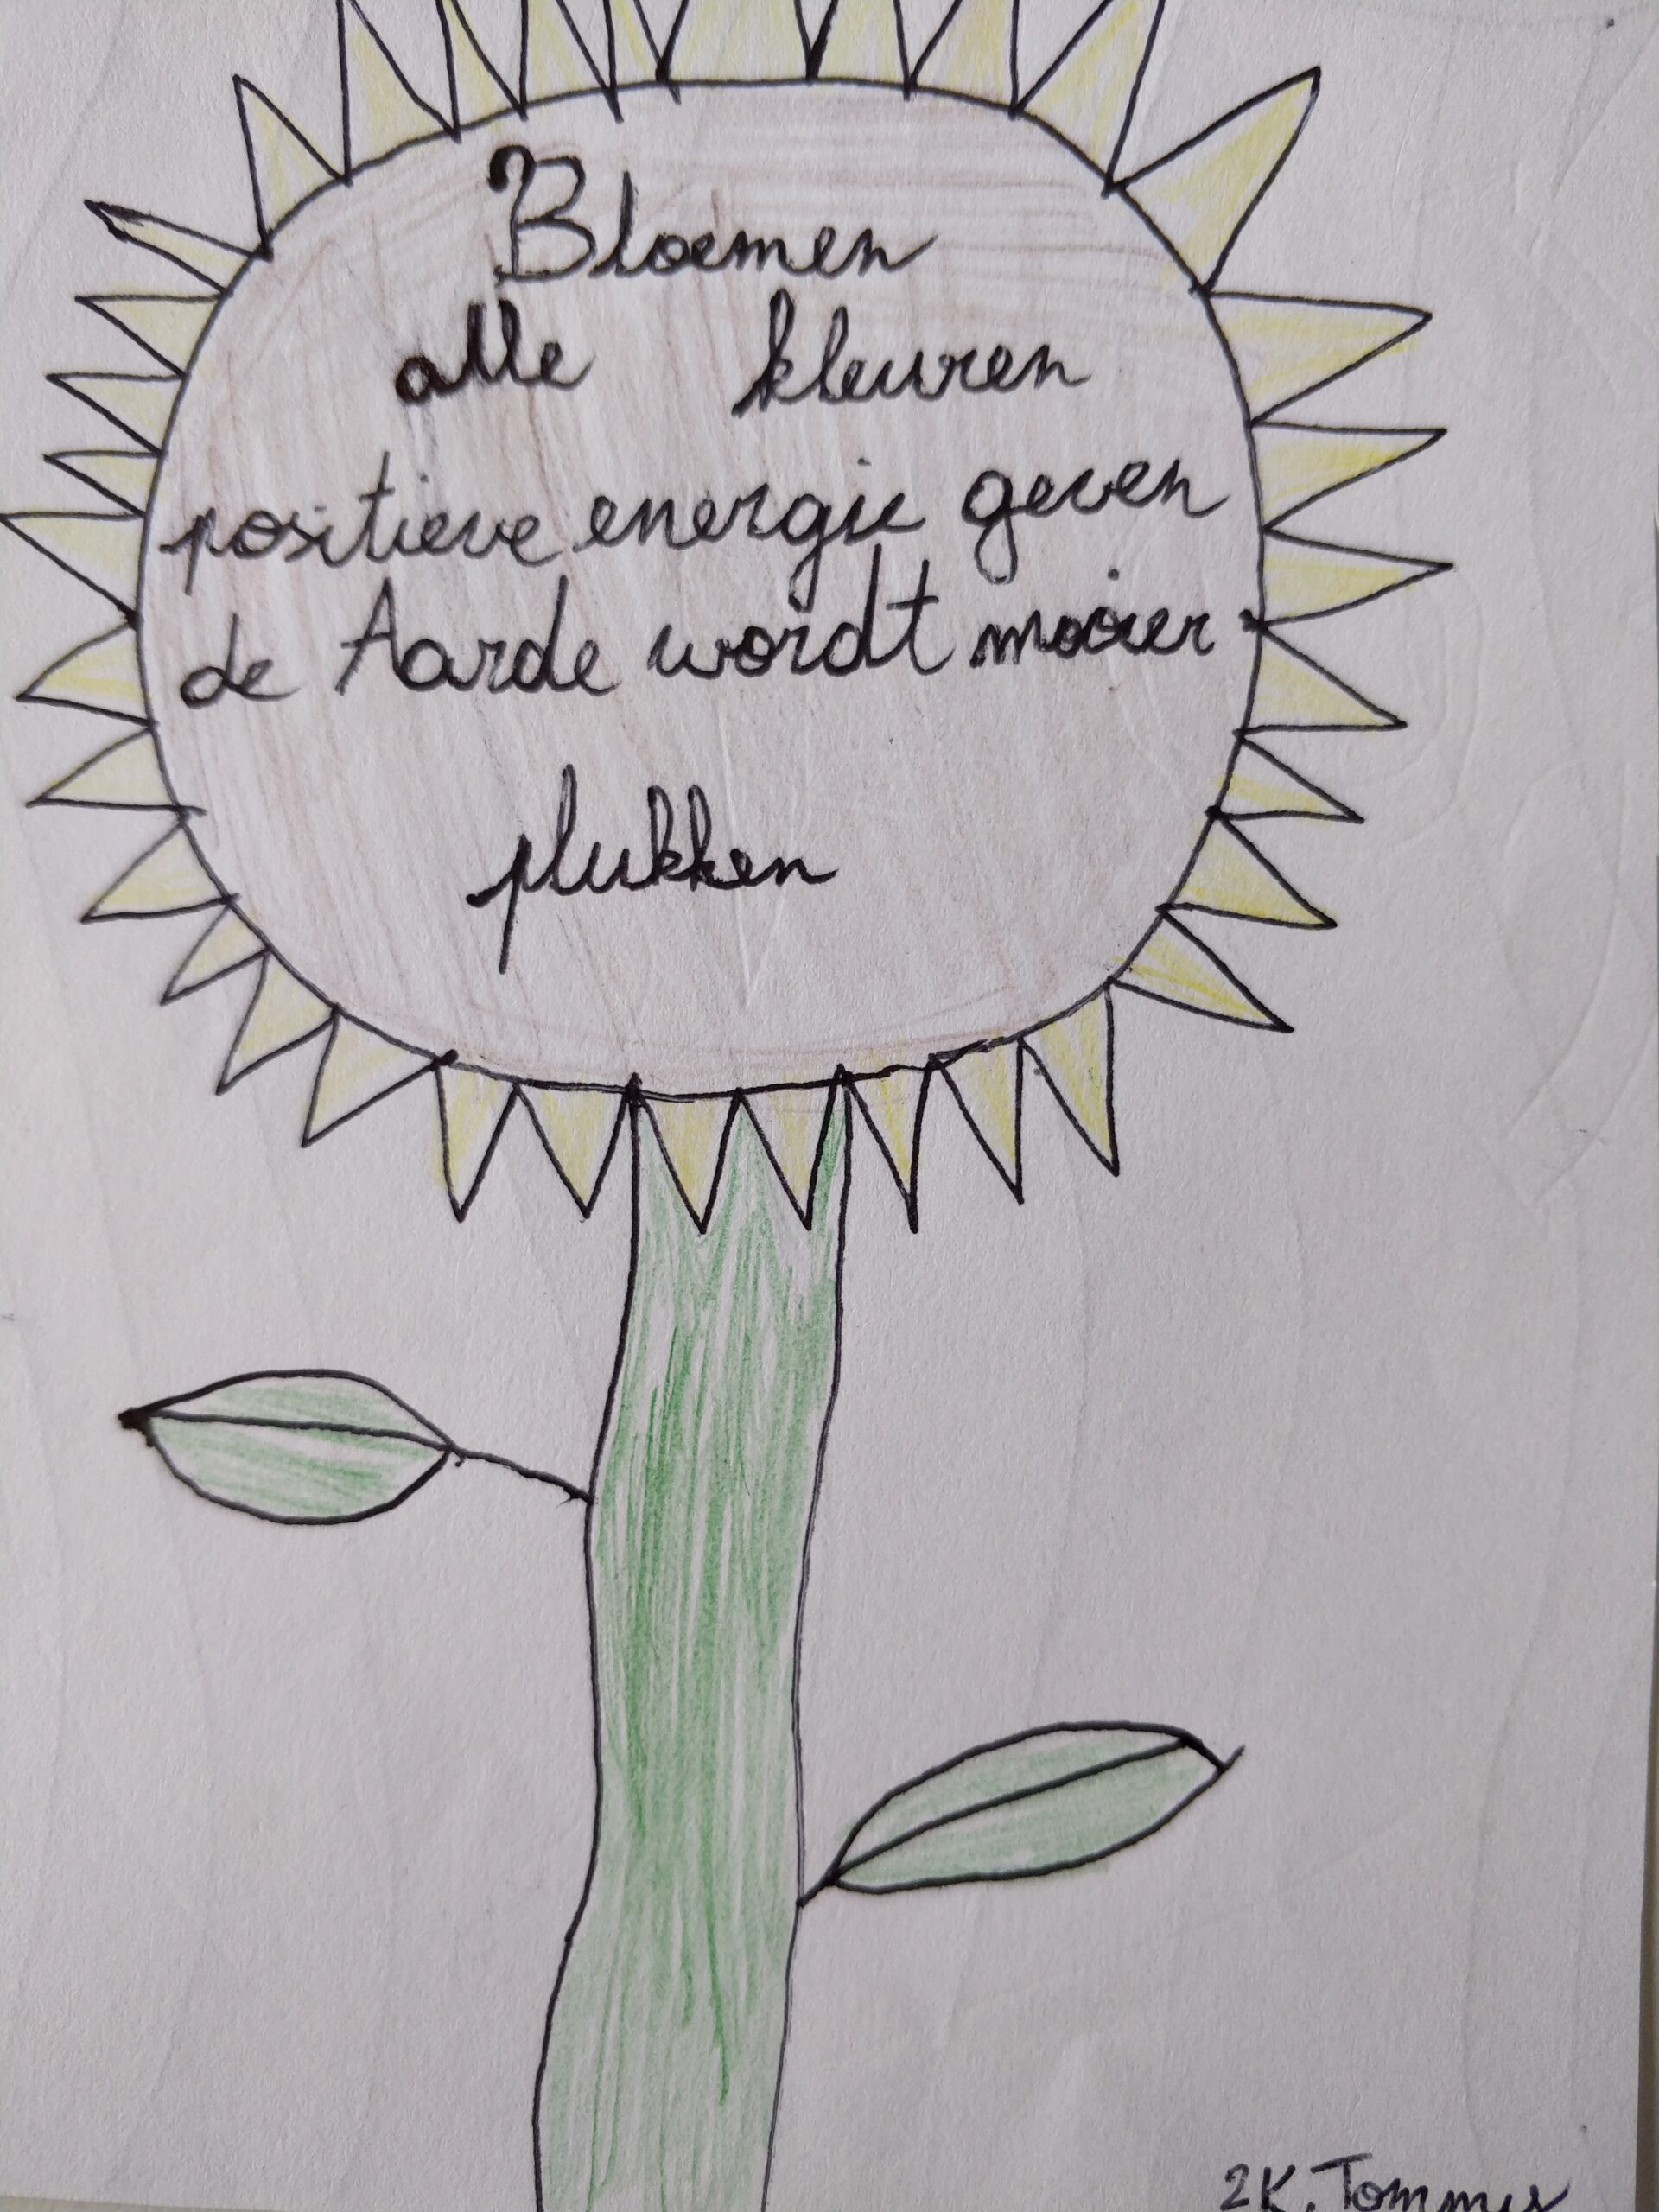 Bloemen
alle kleuren
positieve energie geven
de Aarde wordt mooier
plukken
2K. Tommy